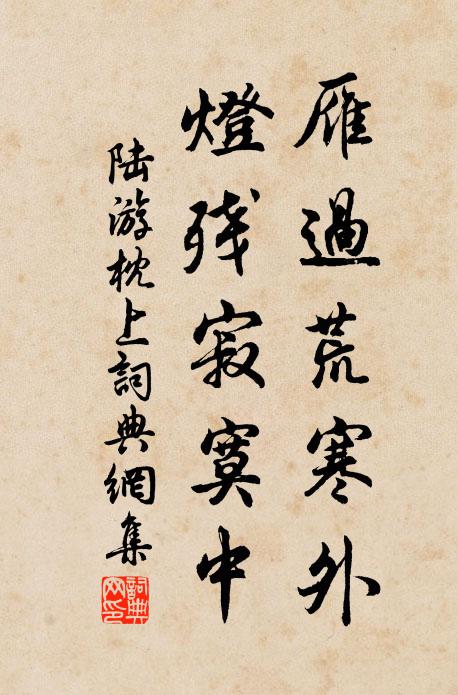 雁過荒寒外
燈残寂寞中
陆游枕上詞典網集
詞典网印